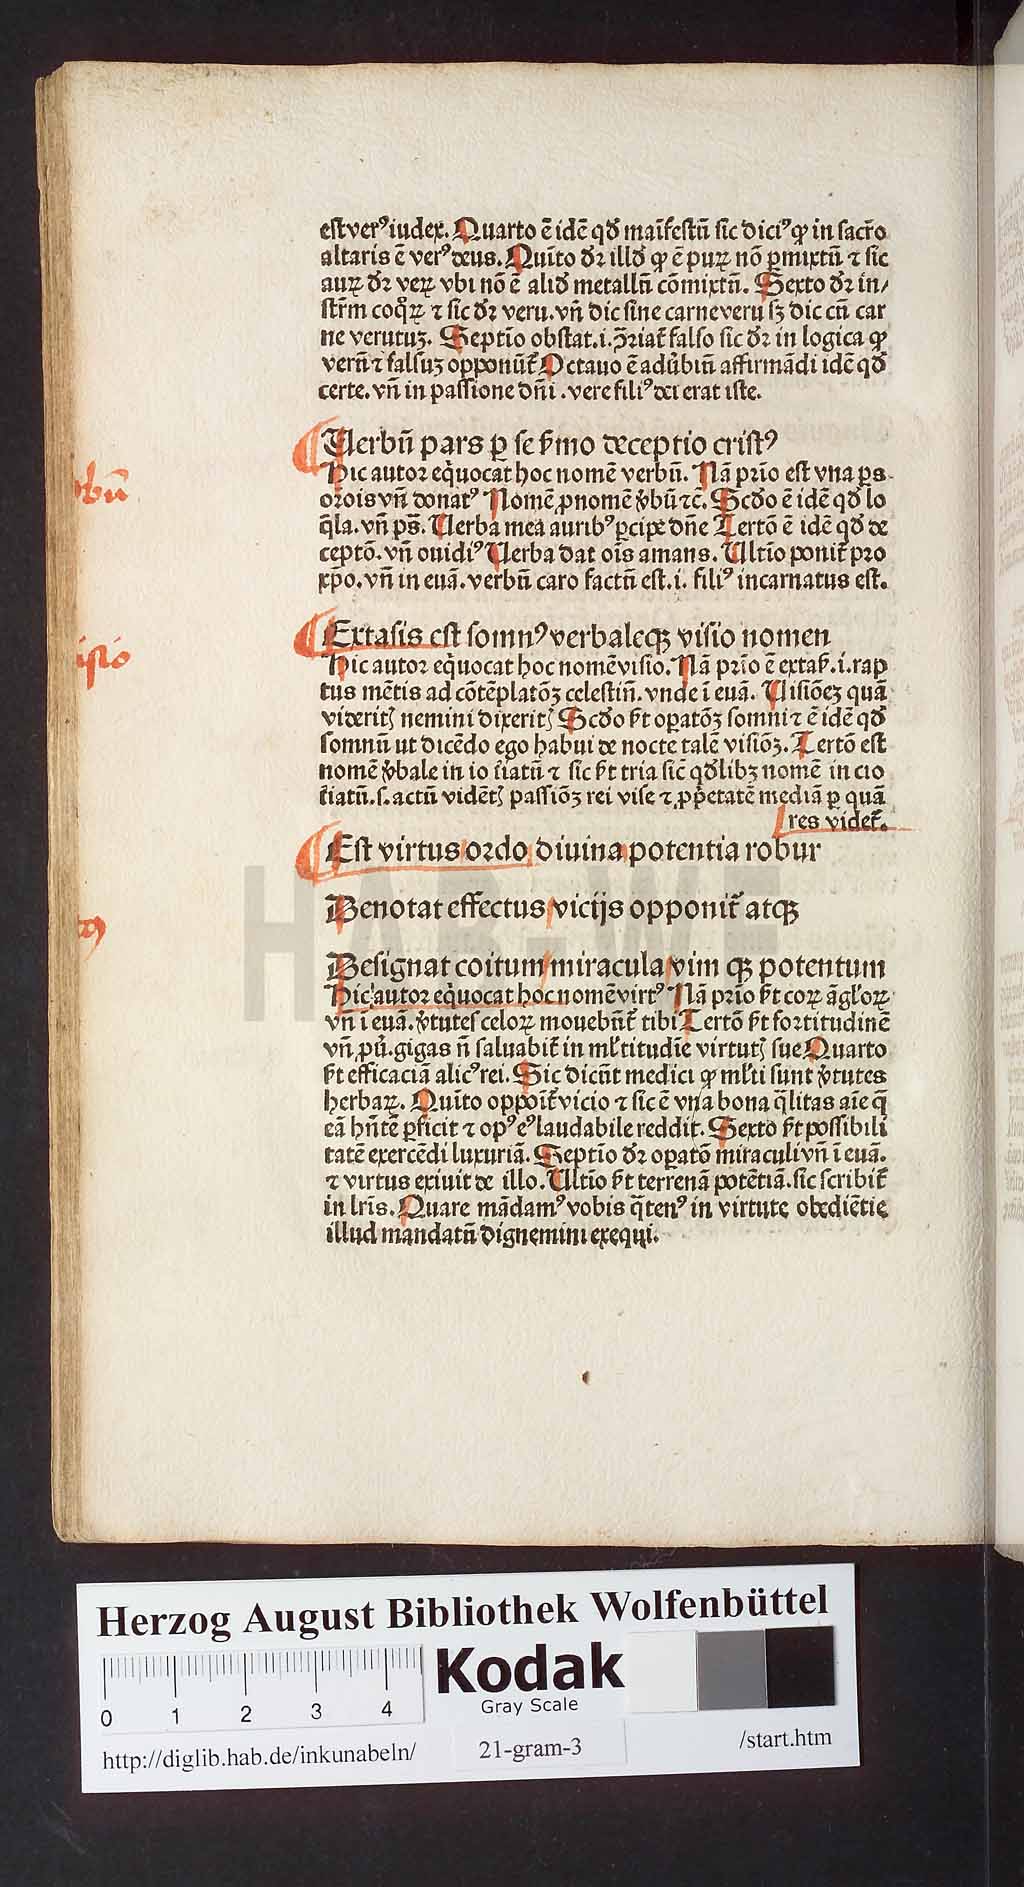 est verꝰ iudex. Quarto ē idē qđ maīfestū sic diciꝰ ꝙ in sacr̄o
altaris ē verꝰ deus. Quīto dr̄ illđ ꝙ ē puꝝ nō ꝑmixtū ⁊ sic
auꝝ dr̄ veꝝ vbi nō ē aliđ metallū cōmixtū. Sexto dr̄ in/
str̄m coqͦꝝ ⁊ sic dr̄ veru. vn̄ dic sine carne veru sꝫ dic cū car
ne verutuꝫ. Septīo obstat. i. ꝯriat᷑ falso sic dr̄ in logica ꝙ
verū ⁊ falsuꝫ opponūt᷑ Octauo ē aduͤbiū affirmādi idē qđ
certe. vn̄ in passione dn̄i. vere filiꝰ dei erat iste.
Uerbū pars ꝑ se ẜmo deceptio cristꝰ
Hic autor eq̇uocat hoc nomē verbū. Nā prīo est vna ps
orois vn̄ donatꝰ Nomē ꝓnomē v̓bū ⁊c̄. Scđo ē idē qđ lo
q̄la. vn̄ ps̄. Uerba mea auribꝰ ꝑcipe dn̄e Tertō ē idē qđ de
ceptō. vn̄ ouidiꝰ Uerba dat oīs amans. Ultīo ponit᷑ pro
xp̄o. vn̄ in euā. verbū caro factū est. i. filiꝰ incarnatus est.
Extasis est somnꝰ verbaleqꝫ visio nomen
Hic autor eq̇uocat hoc nomē visio. Nā prīo ē extaẜ. i. rap
tus mētis ad cōtēplatōꝫ celestiū. vnde ī euā. Uisiōeꝫ quā
videritꝭ nemini dixeritꝭ Scđo ẜt oꝑatōꝫ somni ⁊ ē idē qđ
somnū ut dicēdo ego habui de nocte talē visiōꝫ. Tertō est
nomē v̓bale in io t̓iatū ⁊ sic ẜt tria sic̄ qđlibꝫ nomē in cio
t̓iatū. s. actū vidētꝭ passiōꝫ rei vise ⁊ ꝓp̓etatē mediā ꝑ quā
res videt᷑.
Est virtus ordo diuina potentia robur
Denotat effectus vicijs opponit᷑ atqꝫ
Designat coitum miracula vim qꝫ potentum
Hic autor eq̇uocat hoc nomē virtꝰ Nā prīo ẜt coꝝ āgl'oꝝ
vn̄ ī euā. v̓tutes celoꝝ mouebūt᷑ tibi Tertō ẜt fortitudinē
vn̄ ꝓu͛. gigas n̄ saluabit᷑ in ml'titudīe virtutꝭ sue Quarto
ẜt efficaciā alicꝰ rei. Sic dicūt medici ꝙ ml'ti sunt v̓tutes
herbaꝝ. Quīto oppoīt᷑ vicio ⁊ sic ē vna bona q̄litas aīe q̄
eā hn̄tē ꝑficit ⁊ opꝰ eꝰ laudabile reddit. Sexto ẜt possibili
tatē exercēdi luxuriā. Septīo dr̄ oꝑatō miraculi vn̄ ī euā.
⁊ virtus exiuit de illo. Ultīo ẜt terrenā potētiā. sic scribit᷑
in lr̄is. Quare mādamꝰ vobis q̄tenꝰ in virtute obediētie
illud mandatū dignemini exequi.
bū
isio
Herzog August Bibliothek Wolfenbüttel
Kodak
Gray Scale
0 1 2 3 4
http://diglib.hab.de/inkunabeln/
21-gram-3
/start.htm
HAB-WF